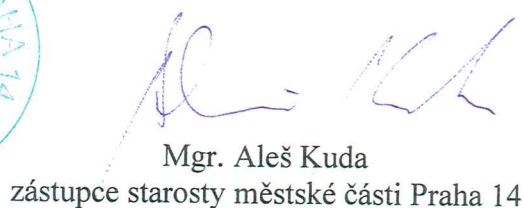 Mgr. Aleš Kuda
zástupce starosty městské části Praha 14